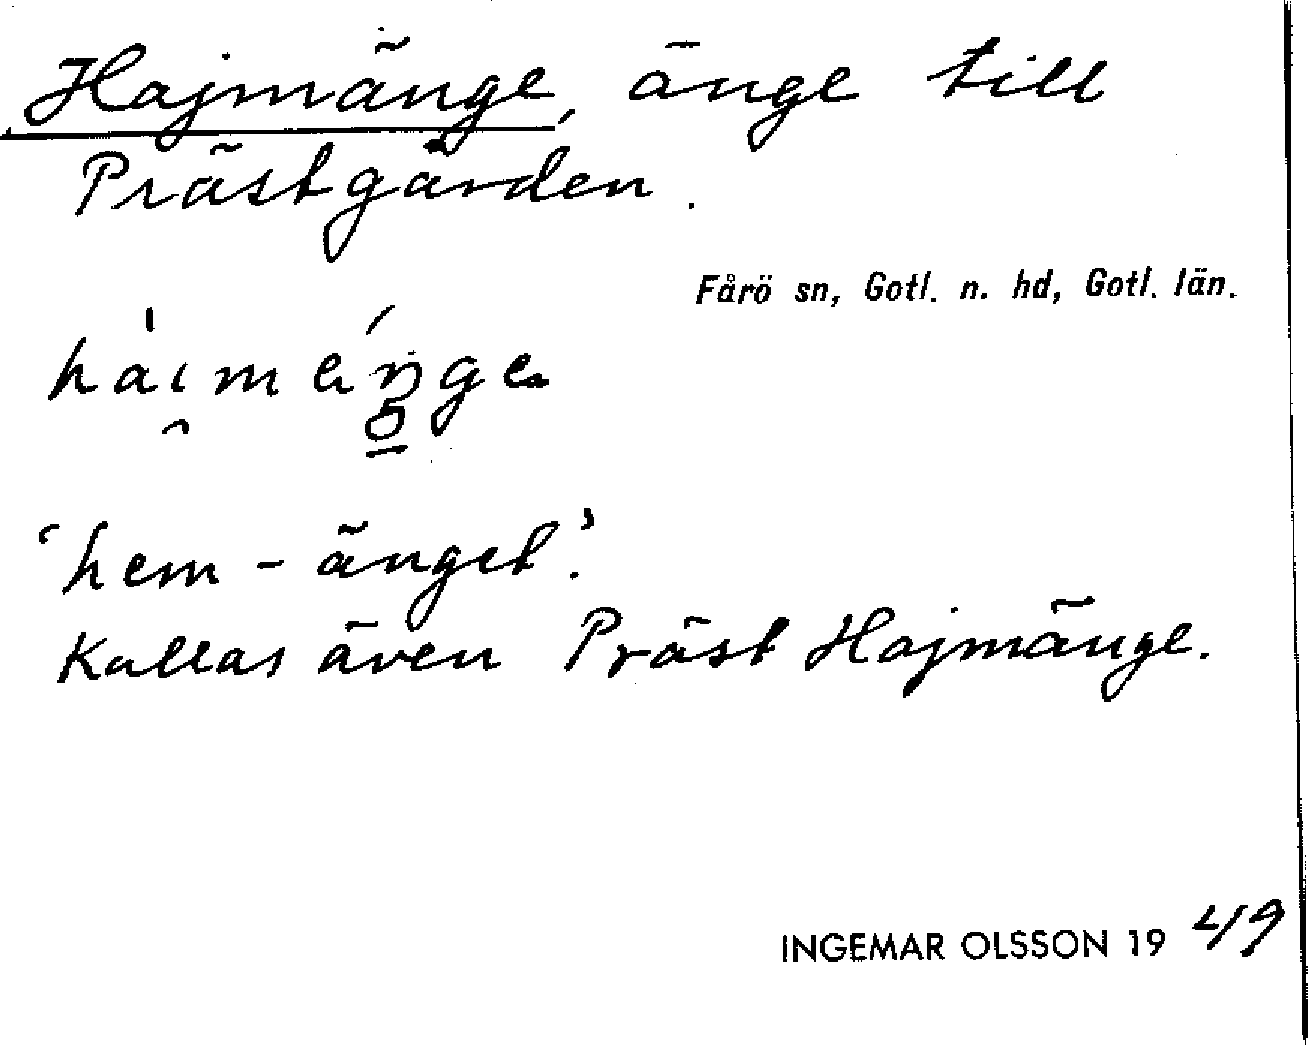 Hajmänge, änge till
Prästgården.
Fårö sn, Gotl. n. hd, Gotl. län.
'hem-änget'.
Kallas även Präst Hajmänge.
INGEMAR OLSSON 19 49